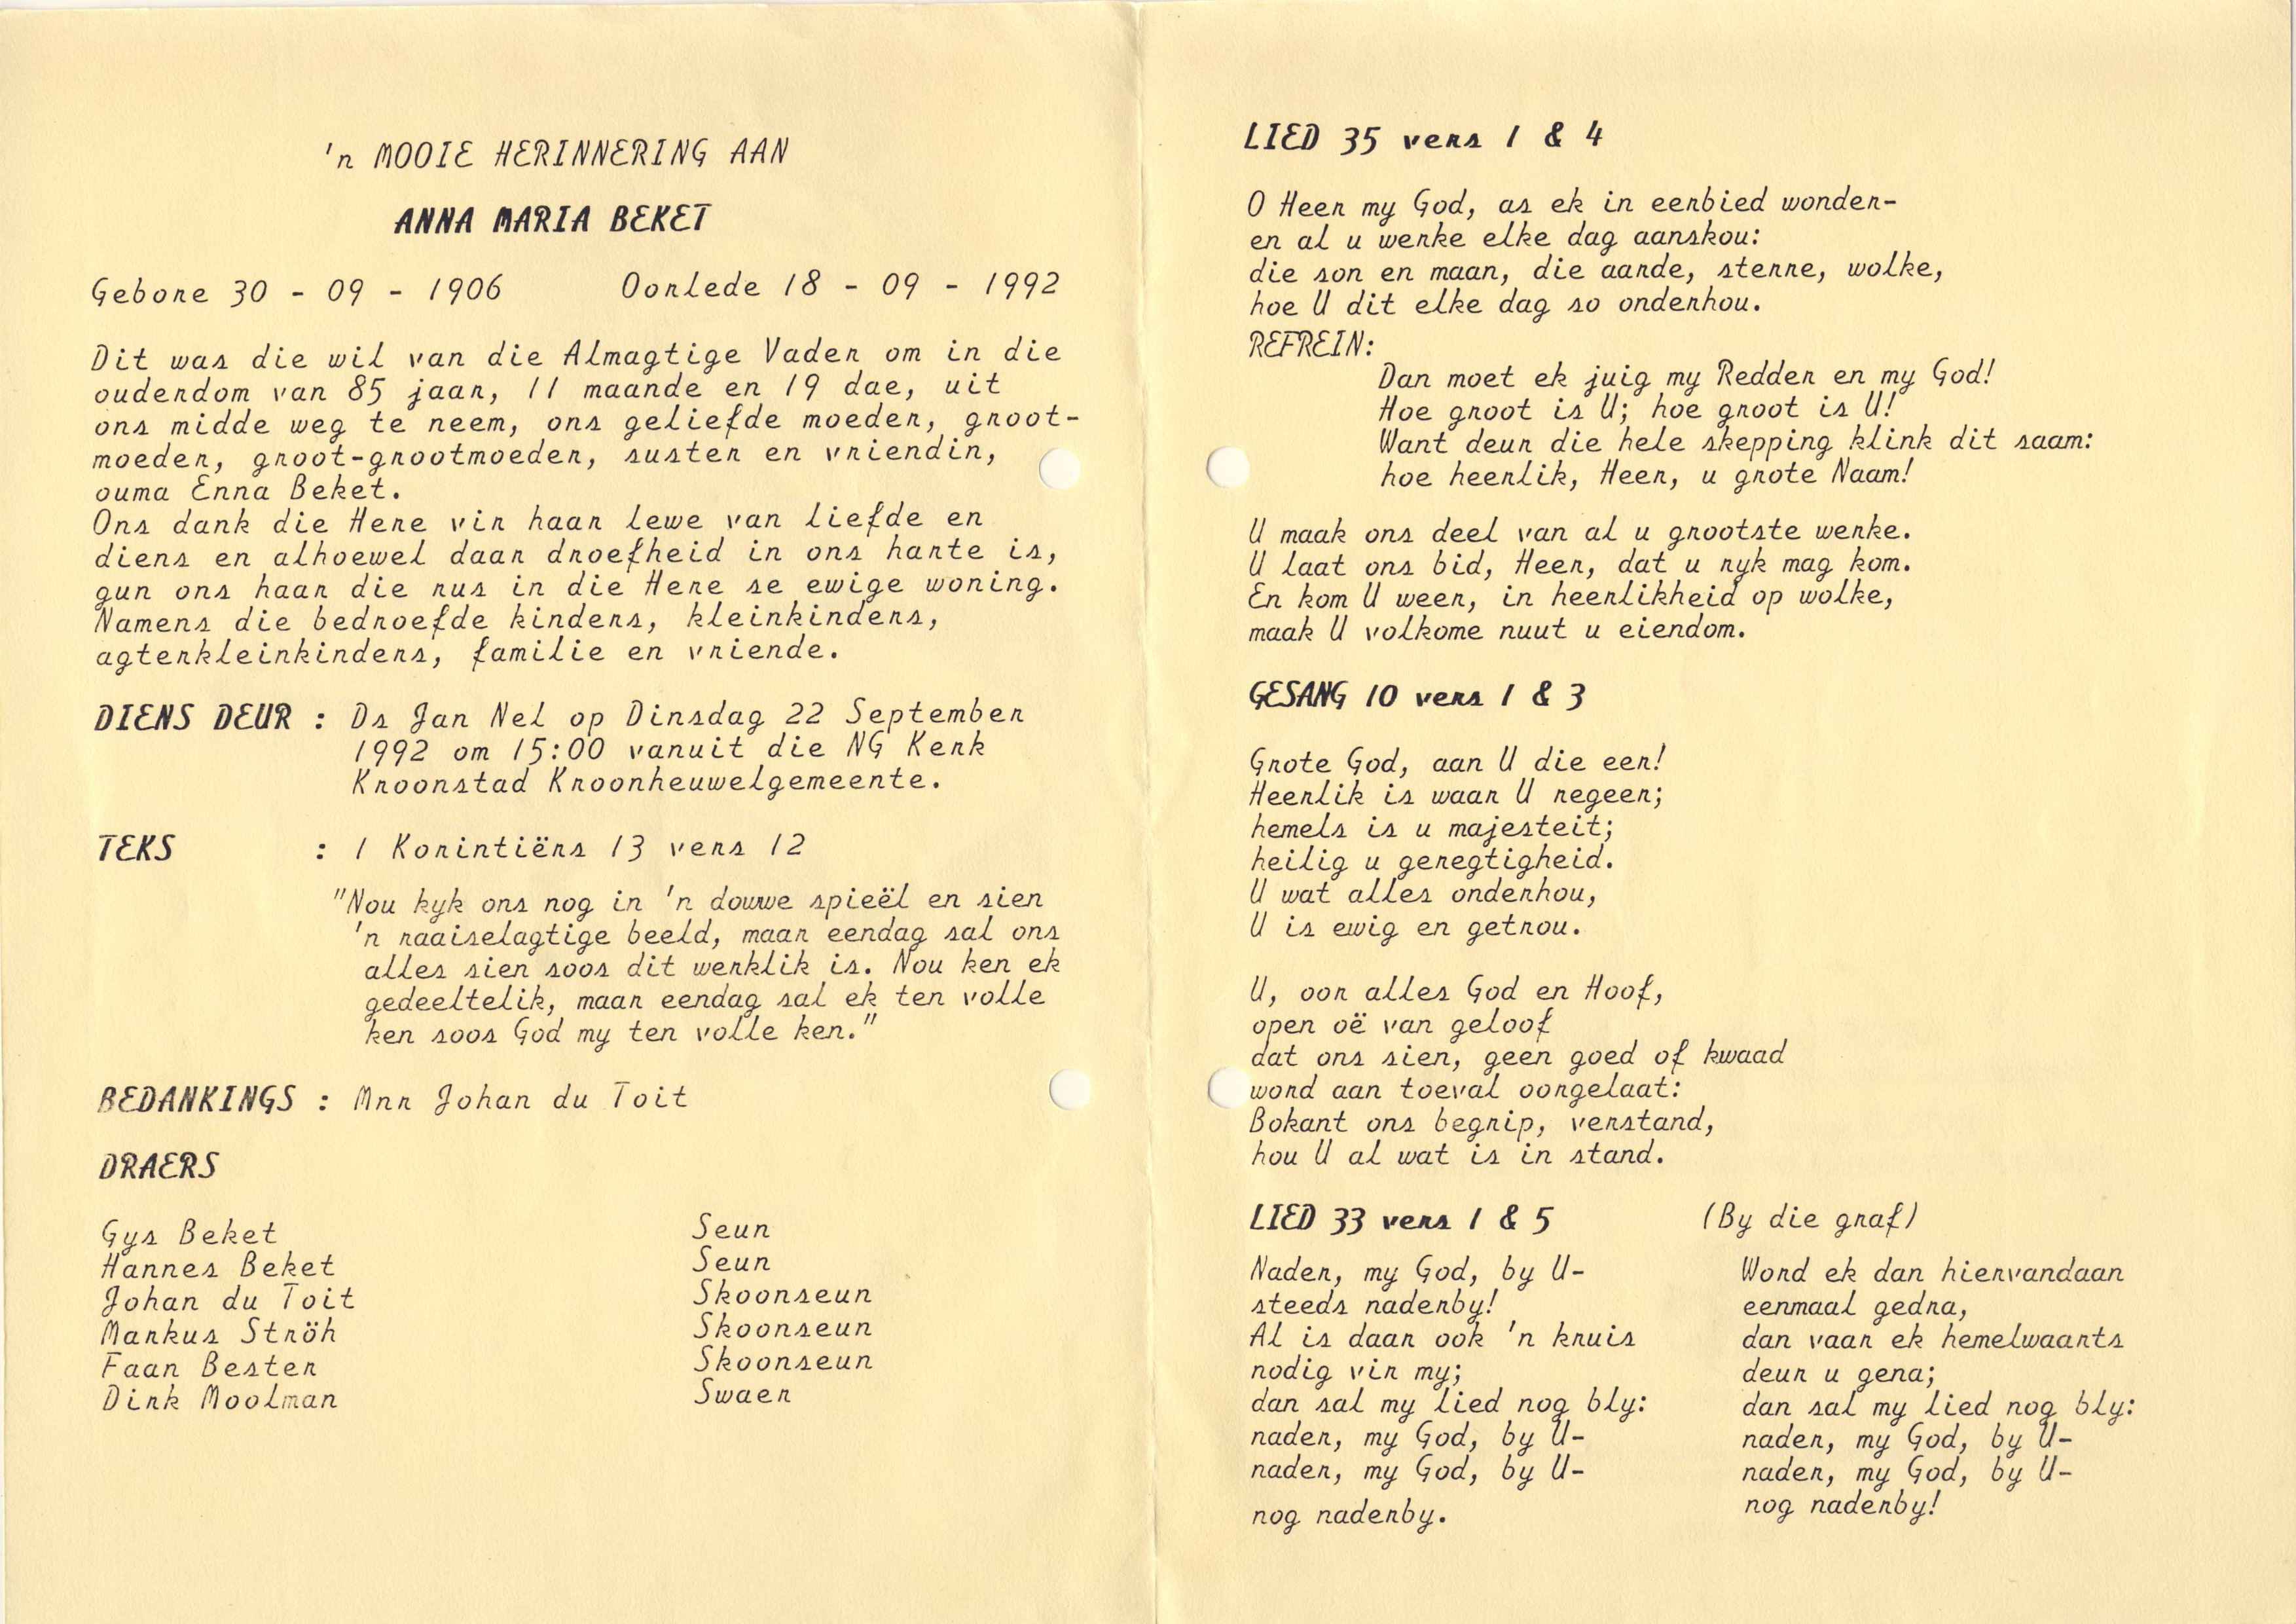 'n MOOIE HERINNERING AAN
ANNA MARIA BEKET
Gebore 30 - 09 - 1906 Oorlede 18 - 09 - 1992
Dit was die wil van die Almagtige Vader om in die
ouderdom van 85 jaar, 11 maande en 19 dae, uit
ons midde weg te neem, ons geliefde moeder, groot-
moeder, groot-grootmoeder, suster en vriendin,
ouma Enna Beket.
Ons dank die Here vir haar lewe van liefde en
diens en alhoewel daar droefheid in ons harte is,
gun ons haar die rus in die Here se ewige woning.
Namens die bedroefde kinders, kleinkinders,
agterkleinkinders, familie en vriende.
DIENS DEUR : Ds Jan Nel op Dinsdag 22 September
1992 om 15:00 vanuit die NG Kerk
Kroonstad Kroonheuwelgemeente.
TEKS : 1 Korintiërs 13 vers 12
"Nou kyk ons nog in 'n douwe spieël en sien
'n raaiselagtige beeld, maar eendag sal ons
alles sien soos dit werklik is. Nou ken ek
gedeeltelik, maar eendag sal ek ten volle
ken soos God my ten volle ken."
BEDANKINGS : Mnr Johan du Toit
DRAERS
Gys Beket Seun
Hannes Beket Seun
Johan du Toit Skoonseun
Markus Ströh Skoonseun
Faan Bester Skoonseun
Dirk Moolman Swaer
LIED 35 vers 1 & 4
O Heer my God, as ek in eerbied wonder-
en al u werke elke dag aanskou:
die son en maan, die aarde, sterre, wolke,
hoe U dit elke dag so onderhou.
REFREIN:
Dan moet ek juig my Redder en my God!
Hoe groot is U; hoe groot is U!
Want deur die hele skepping klink dit saam:
hoe heerlik, Heer, u grote Naam!
U maak ons deel van al u grootste werke.
U laat ons bid, Heer, dat u ryk mag kom.
En kom U weer, in heerlikheid op wolke,
maak U volkome nuut u eiendom.
GESANG 10 vers 1 & 3
Grote God, aan U die eer!
Heerlik is waar U regeer;
hemels is u majesteit;
heilig u geregtigheid.
U wat alles onderhou,
U is ewig en getrou.
U, oor alles God en Hoof,
open oë van geloof
dat ons sien, geen goed of kwaad
word aan toeval oorgelaat:
Bokant ons begrip, verstand,
hou U al wat is in stand.
LIED 33 vers 1 & 5 (By die graf)
Nader, my God, by U-
steeds naderby!
Al is daar ook 'n kruis
nodig vir my;
dan sal my lied nog bly:
nader, my God, by U-
nader, my God, by U-
nog naderby.
Word ek dan hiervandaan
eenmaal gedra,
dan vaar ek hemelwaarts
deur u gena;
dan sal my lied nog bly:
nader, my God, by U-
nader, my God, by U-
nog naderby!